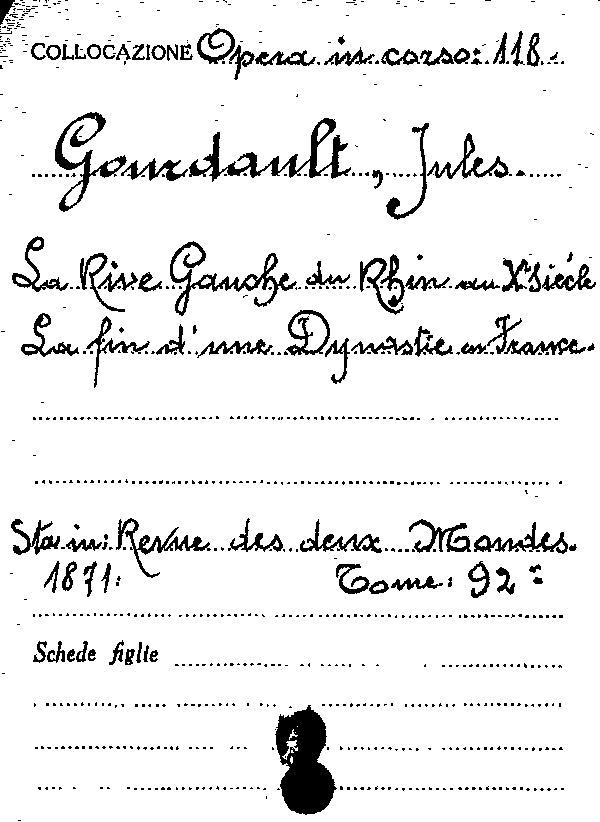 COLLOCAZIONE Opera in corso: 118.
Gourdault, Jules.
La Rive Gauche du Rhin au Xe Siécle
La fin d'une Dynastie en France.
Sta in: Revue des deux Mondes.
1871. Tome: 92
Schede figlie